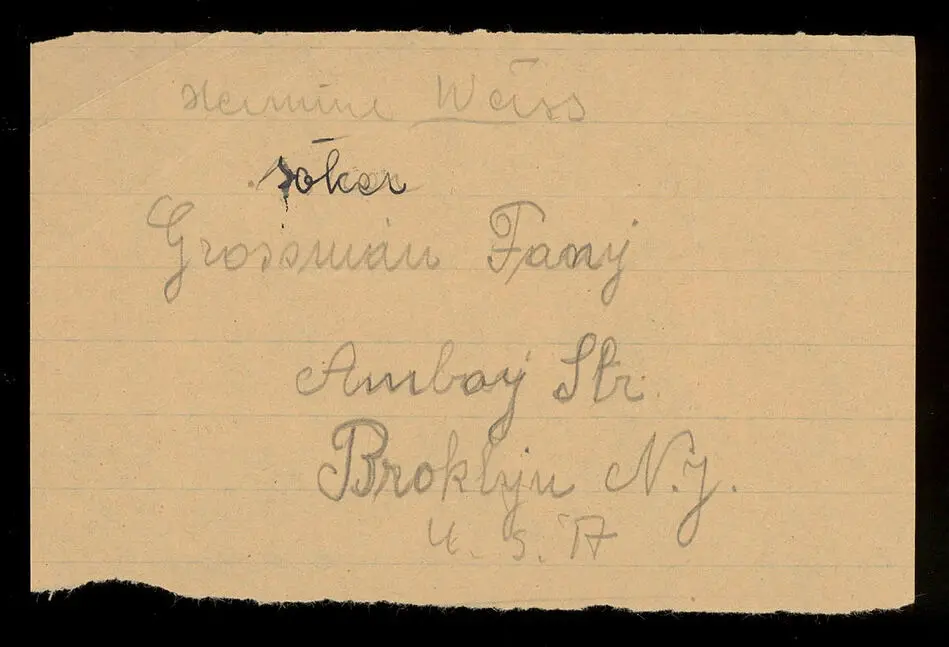 Hermine Weiss
söker
Grossmán Fany
Amboy Str.
Broklyn N.y.
U. S. A